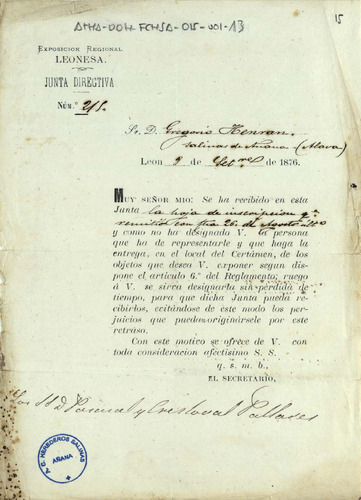 AMA-DOH-FCHSA-015-001-13
15
EXPOSICION REGIONAL
LEONESA.
JUNTA DIRECTIVA
NÚM.º 215.
Sr. D. Gregorio Herran.
Salinas de Añana (Alava)
LEON 9 Set.re DE 1876.
MUY SEÑOR MIO: Se ha recibido en esta
Junta la hoja de inscripcion q.e
remitió con fha 26 de Agosto
y como no ha designado V. la persona
que ha de representarle y que haga la
entrega, en el local del Certámen, de
los objetos que desea V. exponer segun dis-
pone el artículo 6.º del Reglamento; ruego
á V. se sirva designarla sin pérdida de
tiempo, para que dicha Junta pueda re-
cibirlos, evitándose de este modo los per-
juicios que puedan originársele por este
retraso.
Con este motivo se ofrece de V. con
toda consideracion afectísimo S. S.
q. s. m. b.,
EL SECRETARIO,
D Pascual y Cristoval Pallares
A.C. HEREDEROS SALINAS
AÑANA